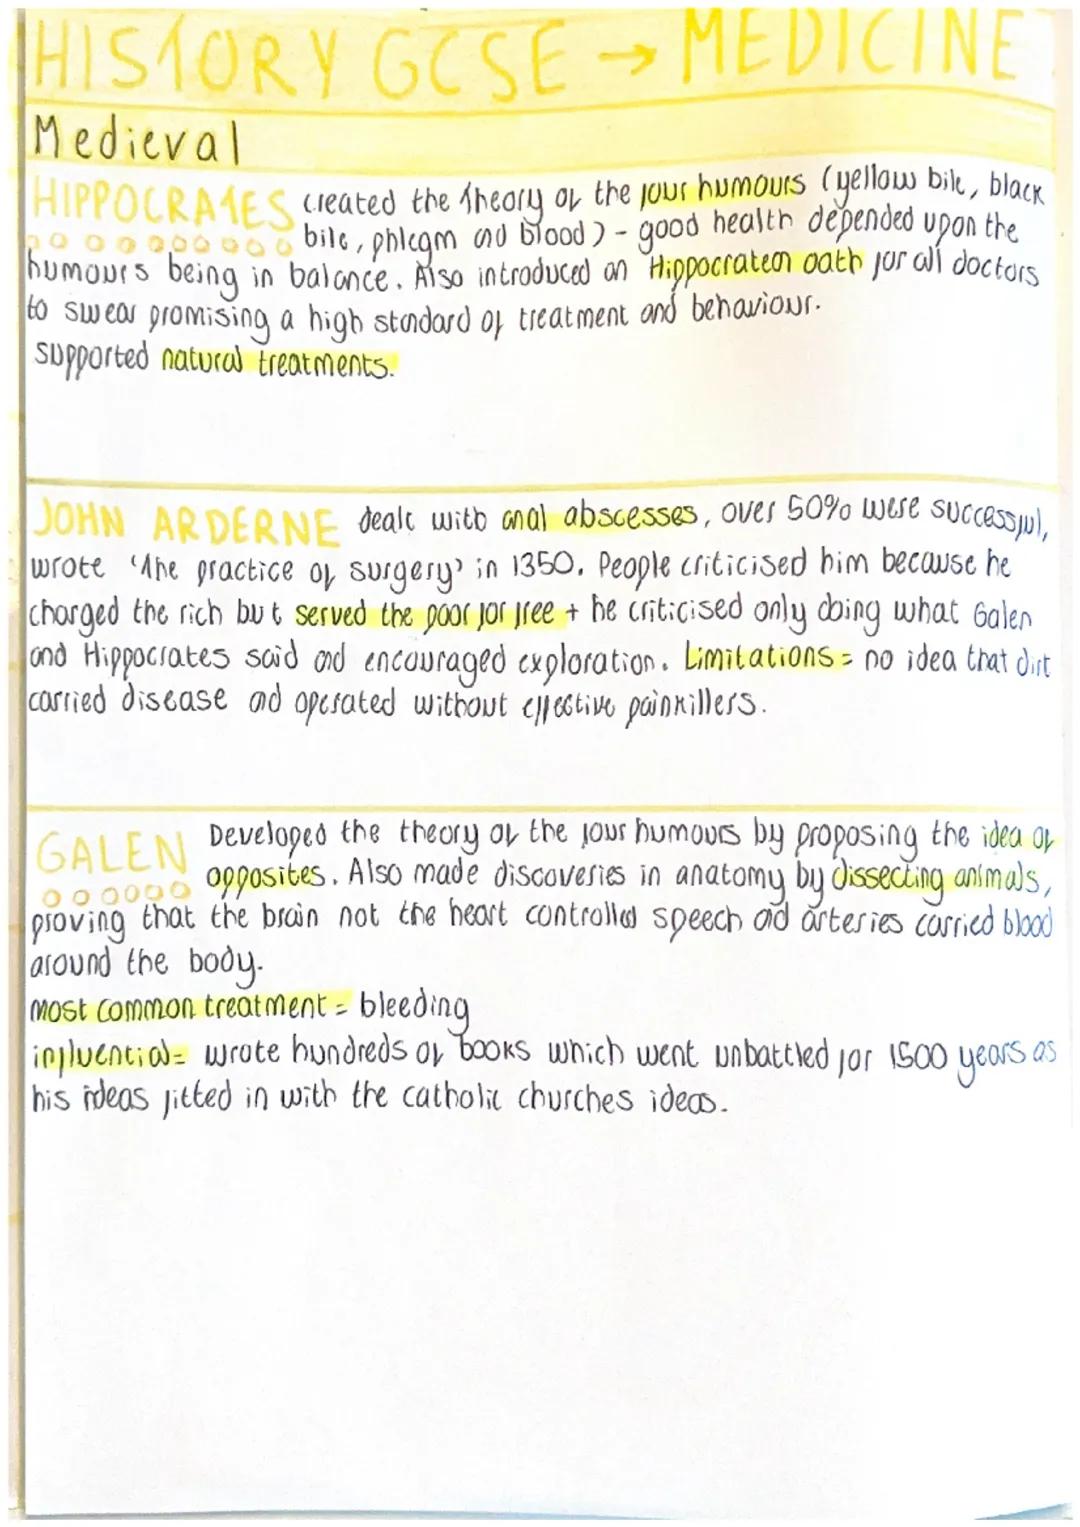 HISTORY GCSE → MEDICINE
Medieval
HIPPOCRATES created the theory of the four humours (yellow bile, black
bile, phlegm and blood) - good health depended upon the
humours being in balance. Also introduced an Hippocratean oath for all doctors
to swear promising a high standard of treatment and behaviour.
Supported natural treatments.
JOHN ARDERNE dealt with anal abscesses, over 50% were successful,
wrote 'The practice of surgery' in 1350. People criticised him because he
charged the rich but served the poor for free + he criticised only doing what Galen
and Hippocrates said and encouraged exploration. Limitations = no idea that dirt
carried disease and operated without effective painkillers.
GALEN Developed the theory of the four humours by proposing the idea of
opposites. Also made discoveries in anatomy by dissecting animals,
proving that the brain not the heart controlled speech and arteries carried blood
around the body.
most common treatment = bleeding
influential = wrote hundreds of books which went unbattled for 1500 years as
his ideas fitted in with the catholic churches ideas.